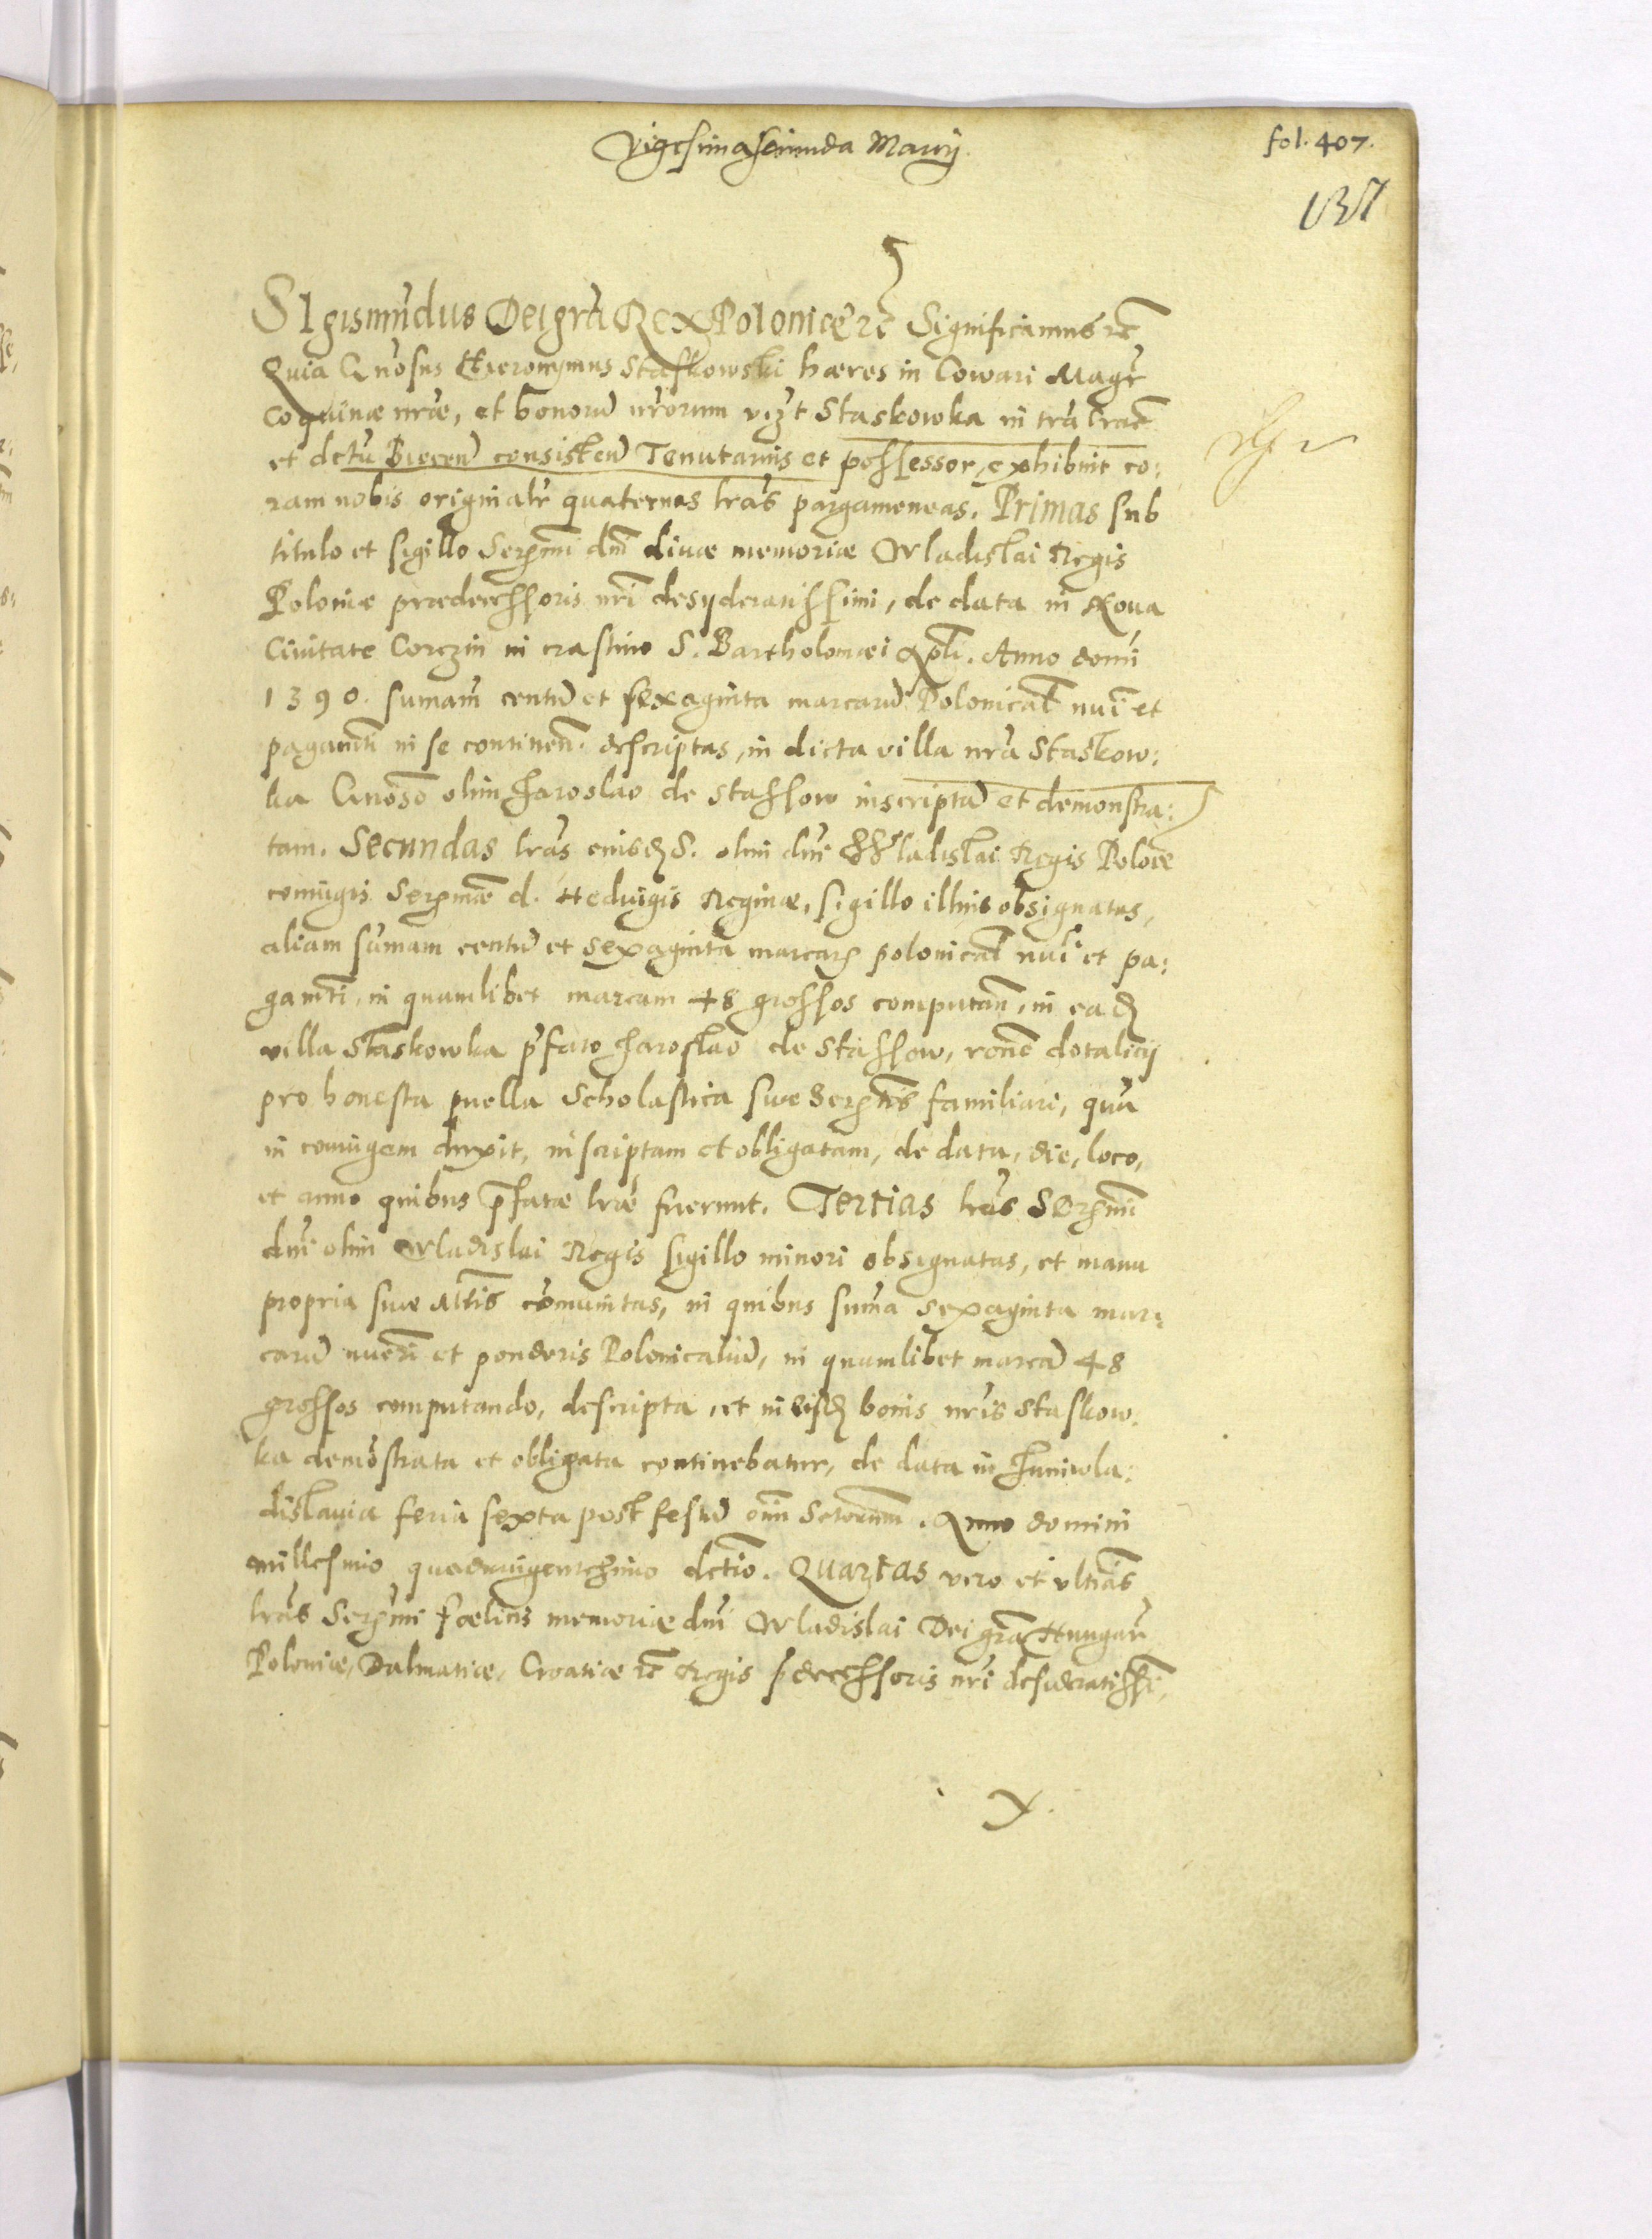 Vigesima secunda Marcij.
fol. 407.
137
SIgismūdus Dei grā Rex Poloniæ rc̃ Significamus rc̃
Quia Gnosus Hieronymus Staskowski hæres in Cowari Magr̃
Coquinæ nræ, et bonorū nrorum vizt Staskowka in tra trac̃
et dctu Biecen̄ consisten̄ Tenutarius et possessor, exhibuit co:
ram nobis originalr quaternas lras pargameneas. Primas sub
titulo et sigillo Sermi dni diuæ memoriæ Wladislai Regis
Poloniæ prædecessoris nri desyderatissimi, de data in Noua
Ciuitate Corczin in crastino S. Bartholomæi Apli. Anno domi
1390. sumam centū et sexaginta marcarū Polonicał nui et
pagamti in se continen. descriptas, in dicta villa nra Staskow:
ka Gnoso olim Jaroslao de Stassow inscriptā et demonstra:
tam. Secundas lras eiusdē S. olim dni Wladislai Regis Poloæ
coniugis Sermæ d. Heduigis Reginæ, sigillo illius obsignatas,
aliam sumam centū et sexaginta marcarƺ polonicał nui et pa:
gamti, in quamlibet marcam 48 grossos computan, in eadē
villa Staskowka pfato Jaroslao de Stassow, rone dotalicij
pro honesta puella Scholastica suæ Sertis familiari, quā
in coniugem duxit, inscriptam et obligatam, de data, die, loco,
et anno quibus pfatæ lræ fuerunt. Tertias lras Sermi
dni olim Wladislai Regis sigillo minori obsignatas, et manu
propria suæ Mtis comunitas, in quibus suma sexaginta mar:
carū nueri et ponderis Polonicaliū, in quamlibet marcā 48
grossos computando, descripta, et in eisdē bonis nris Staskow:
ka demōstrata et obligata continebatur, de data in Juniwla:
dislauia feria sexta post festū oim Sctorum. Anno domini
millesimo quadringentesimo dctio. Quartas vero et vltias
lras Sermi fœlicis memoriæ dni Wladislai Dei gra Hungar
Poloniæ, Dalmatiæ, Croatiæ rc̃ Regis pdecessoris nri desideratissi,